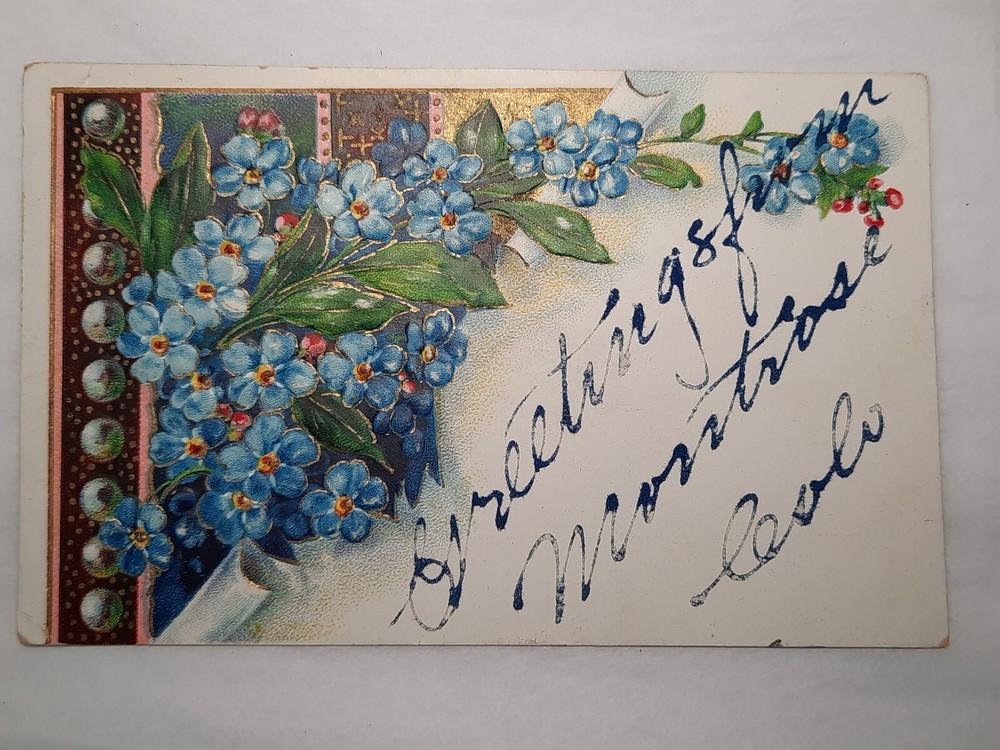 Greetings from
Montrose
Colo